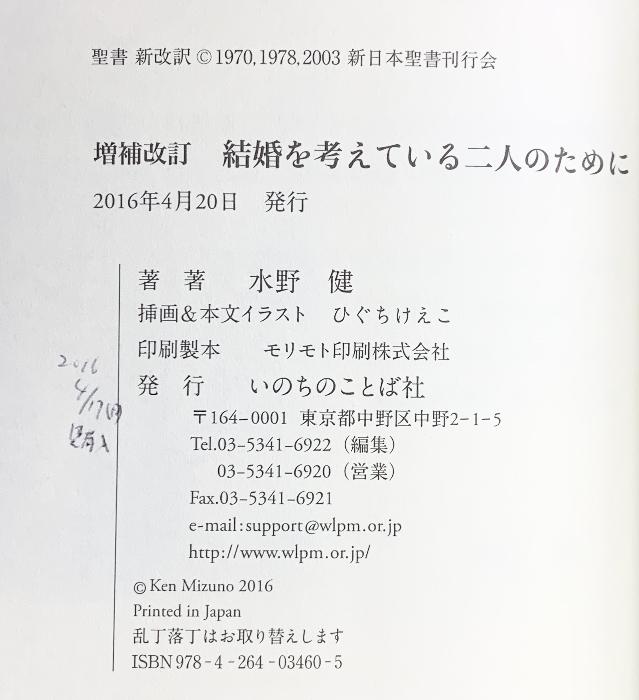 聖書 新改訳 ©1970,1978,2003 新日本聖書刊行会
増補改訂　結婚を考えている二人のために
2016年4月20日　発行
著　著　水野　健
挿画&本文イラスト　ひぐちけえこ
印刷製本　モリモト印刷株式会社
発　行　いのちのことば社
〒164-0001 東京都中野区中野2-1-5
Tel.03-5341-6922（編集）
03-5341-6920（営業）
Fax.03-5341-6921
e-mail:support@wlpm.or.jp
http://www.wlpm.or.jp/
©Ken Mizuno 2016
Printed in Japan
乱丁落丁はお取り替えします
ISBN978-4-264-03460-5
2016
4/17(日)
購入